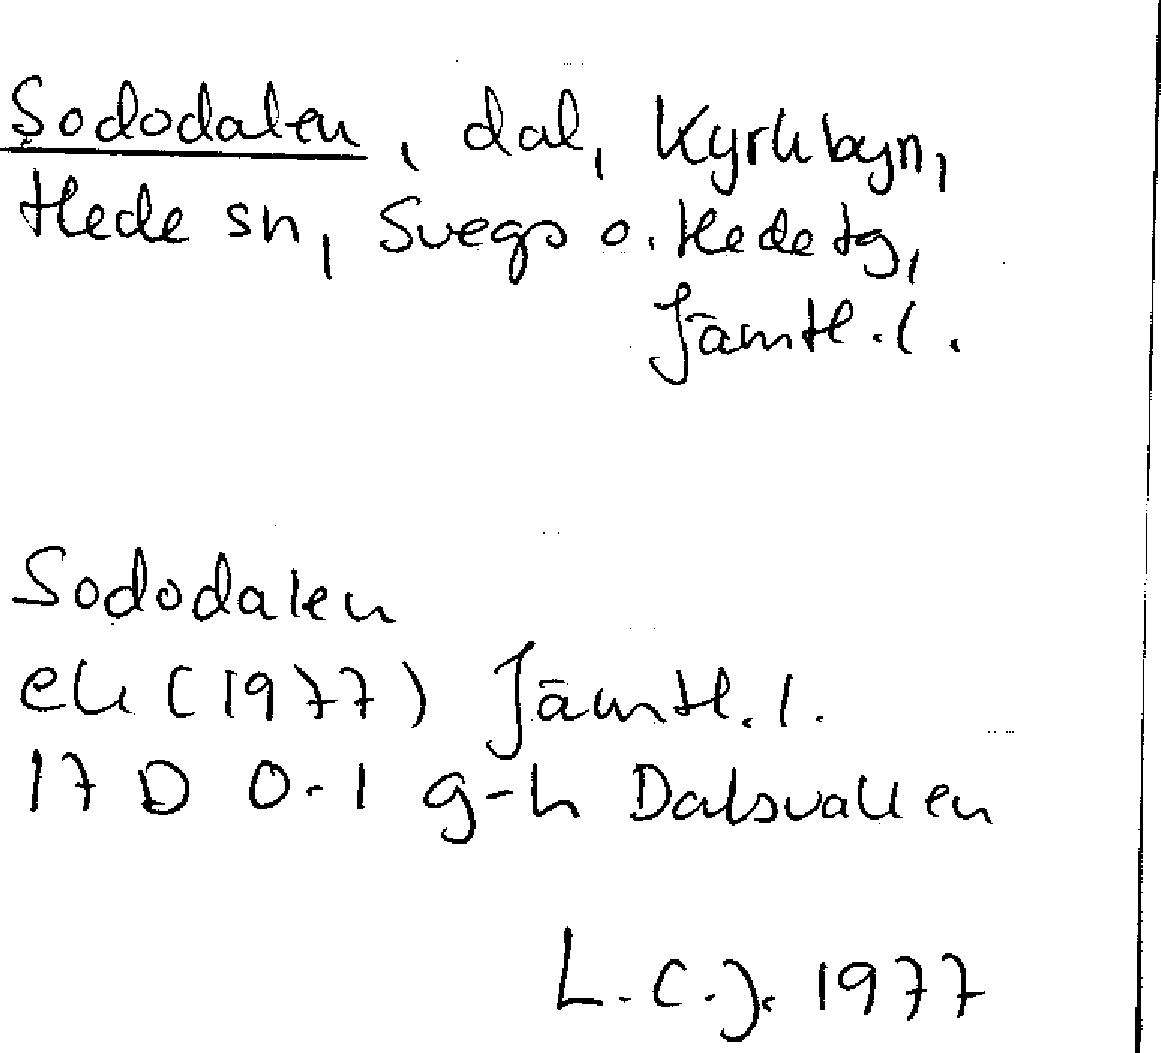 Sododalen, dal, Kyrkbyn,
Hede sn, Svegs o. Hede tg,
Jämtl. l.
Sododalen
ek (1977) Jämtl. l.
17 D 0-1 g-h Dalsvallen
L.C.J. 1977